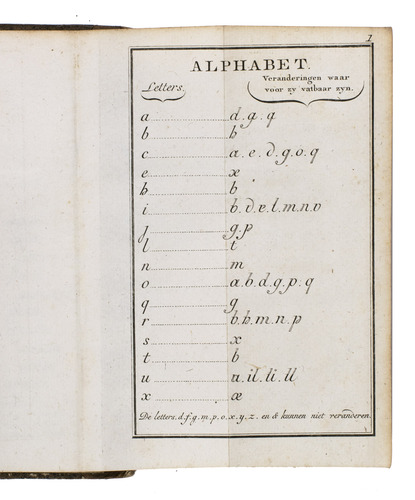 1
ALPHABET.
Letters.
Veranderingen waar
voor zy vatbaar zyn.
a d.g.q
b h
c a.e.d.g.o.q
e æ
h b
i b.d.e.l.m.n.o
j g.p
l t
n m
o a.b.d.g.p.q
q g
r b.h.m.n.p
s x
t b
u a.il.li.ll
x æ
De letters, d.f.g.m.p.o.x.y.z. en & kunnen niet veranderen.